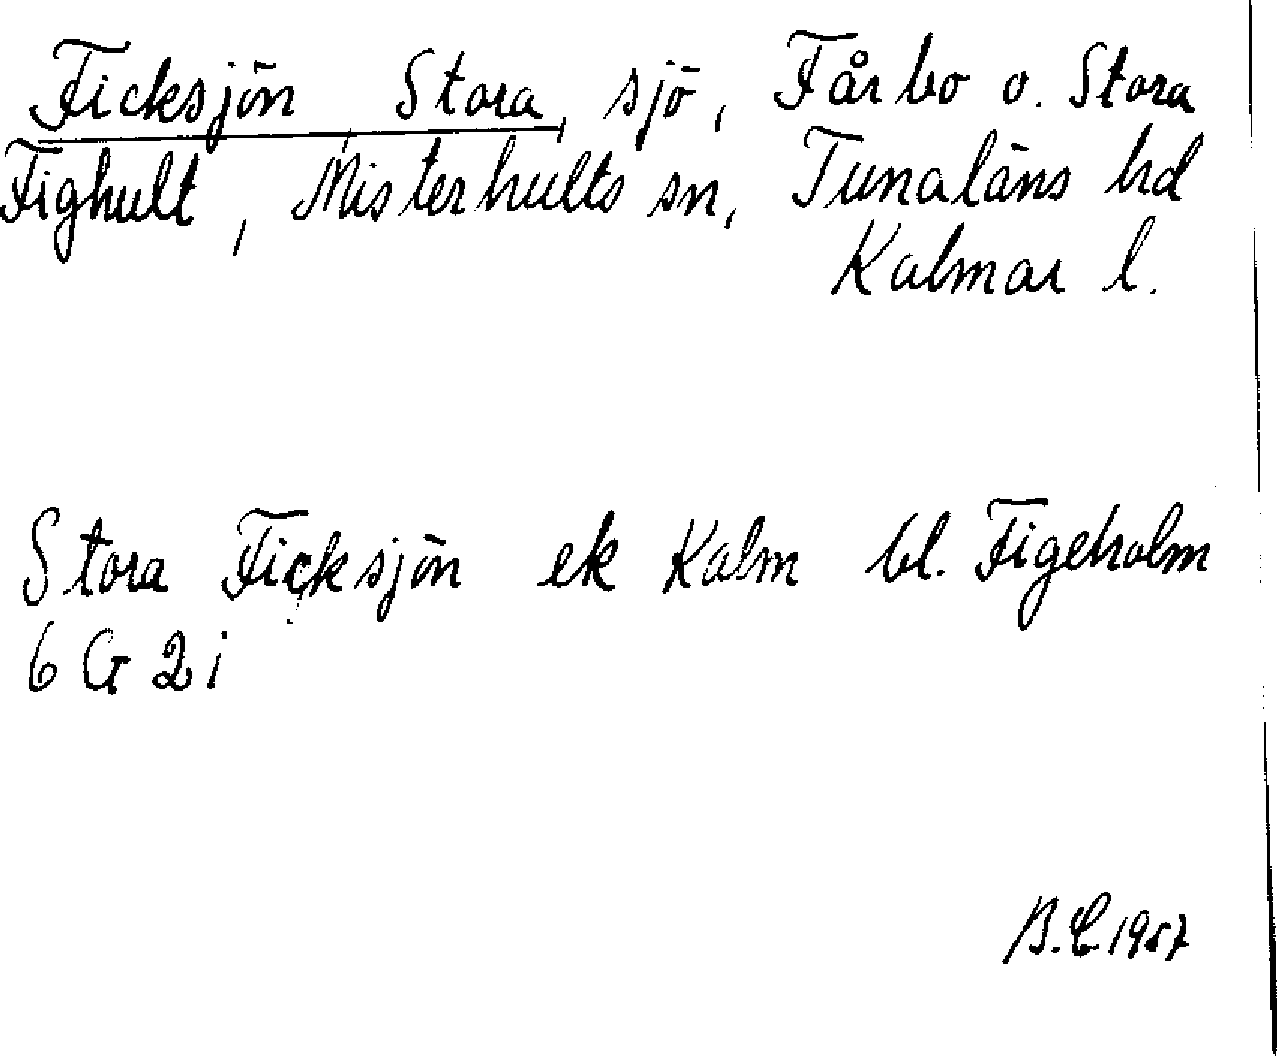 Ficksjön, Stora, sjö, Fårbo o. Stora
Fighult, Misterhults sn, Tunaläns hd
Kalmar l.
Stora Ficksjön ek Kalm bl. Figeholm
6 G 2 i
B.E 1957